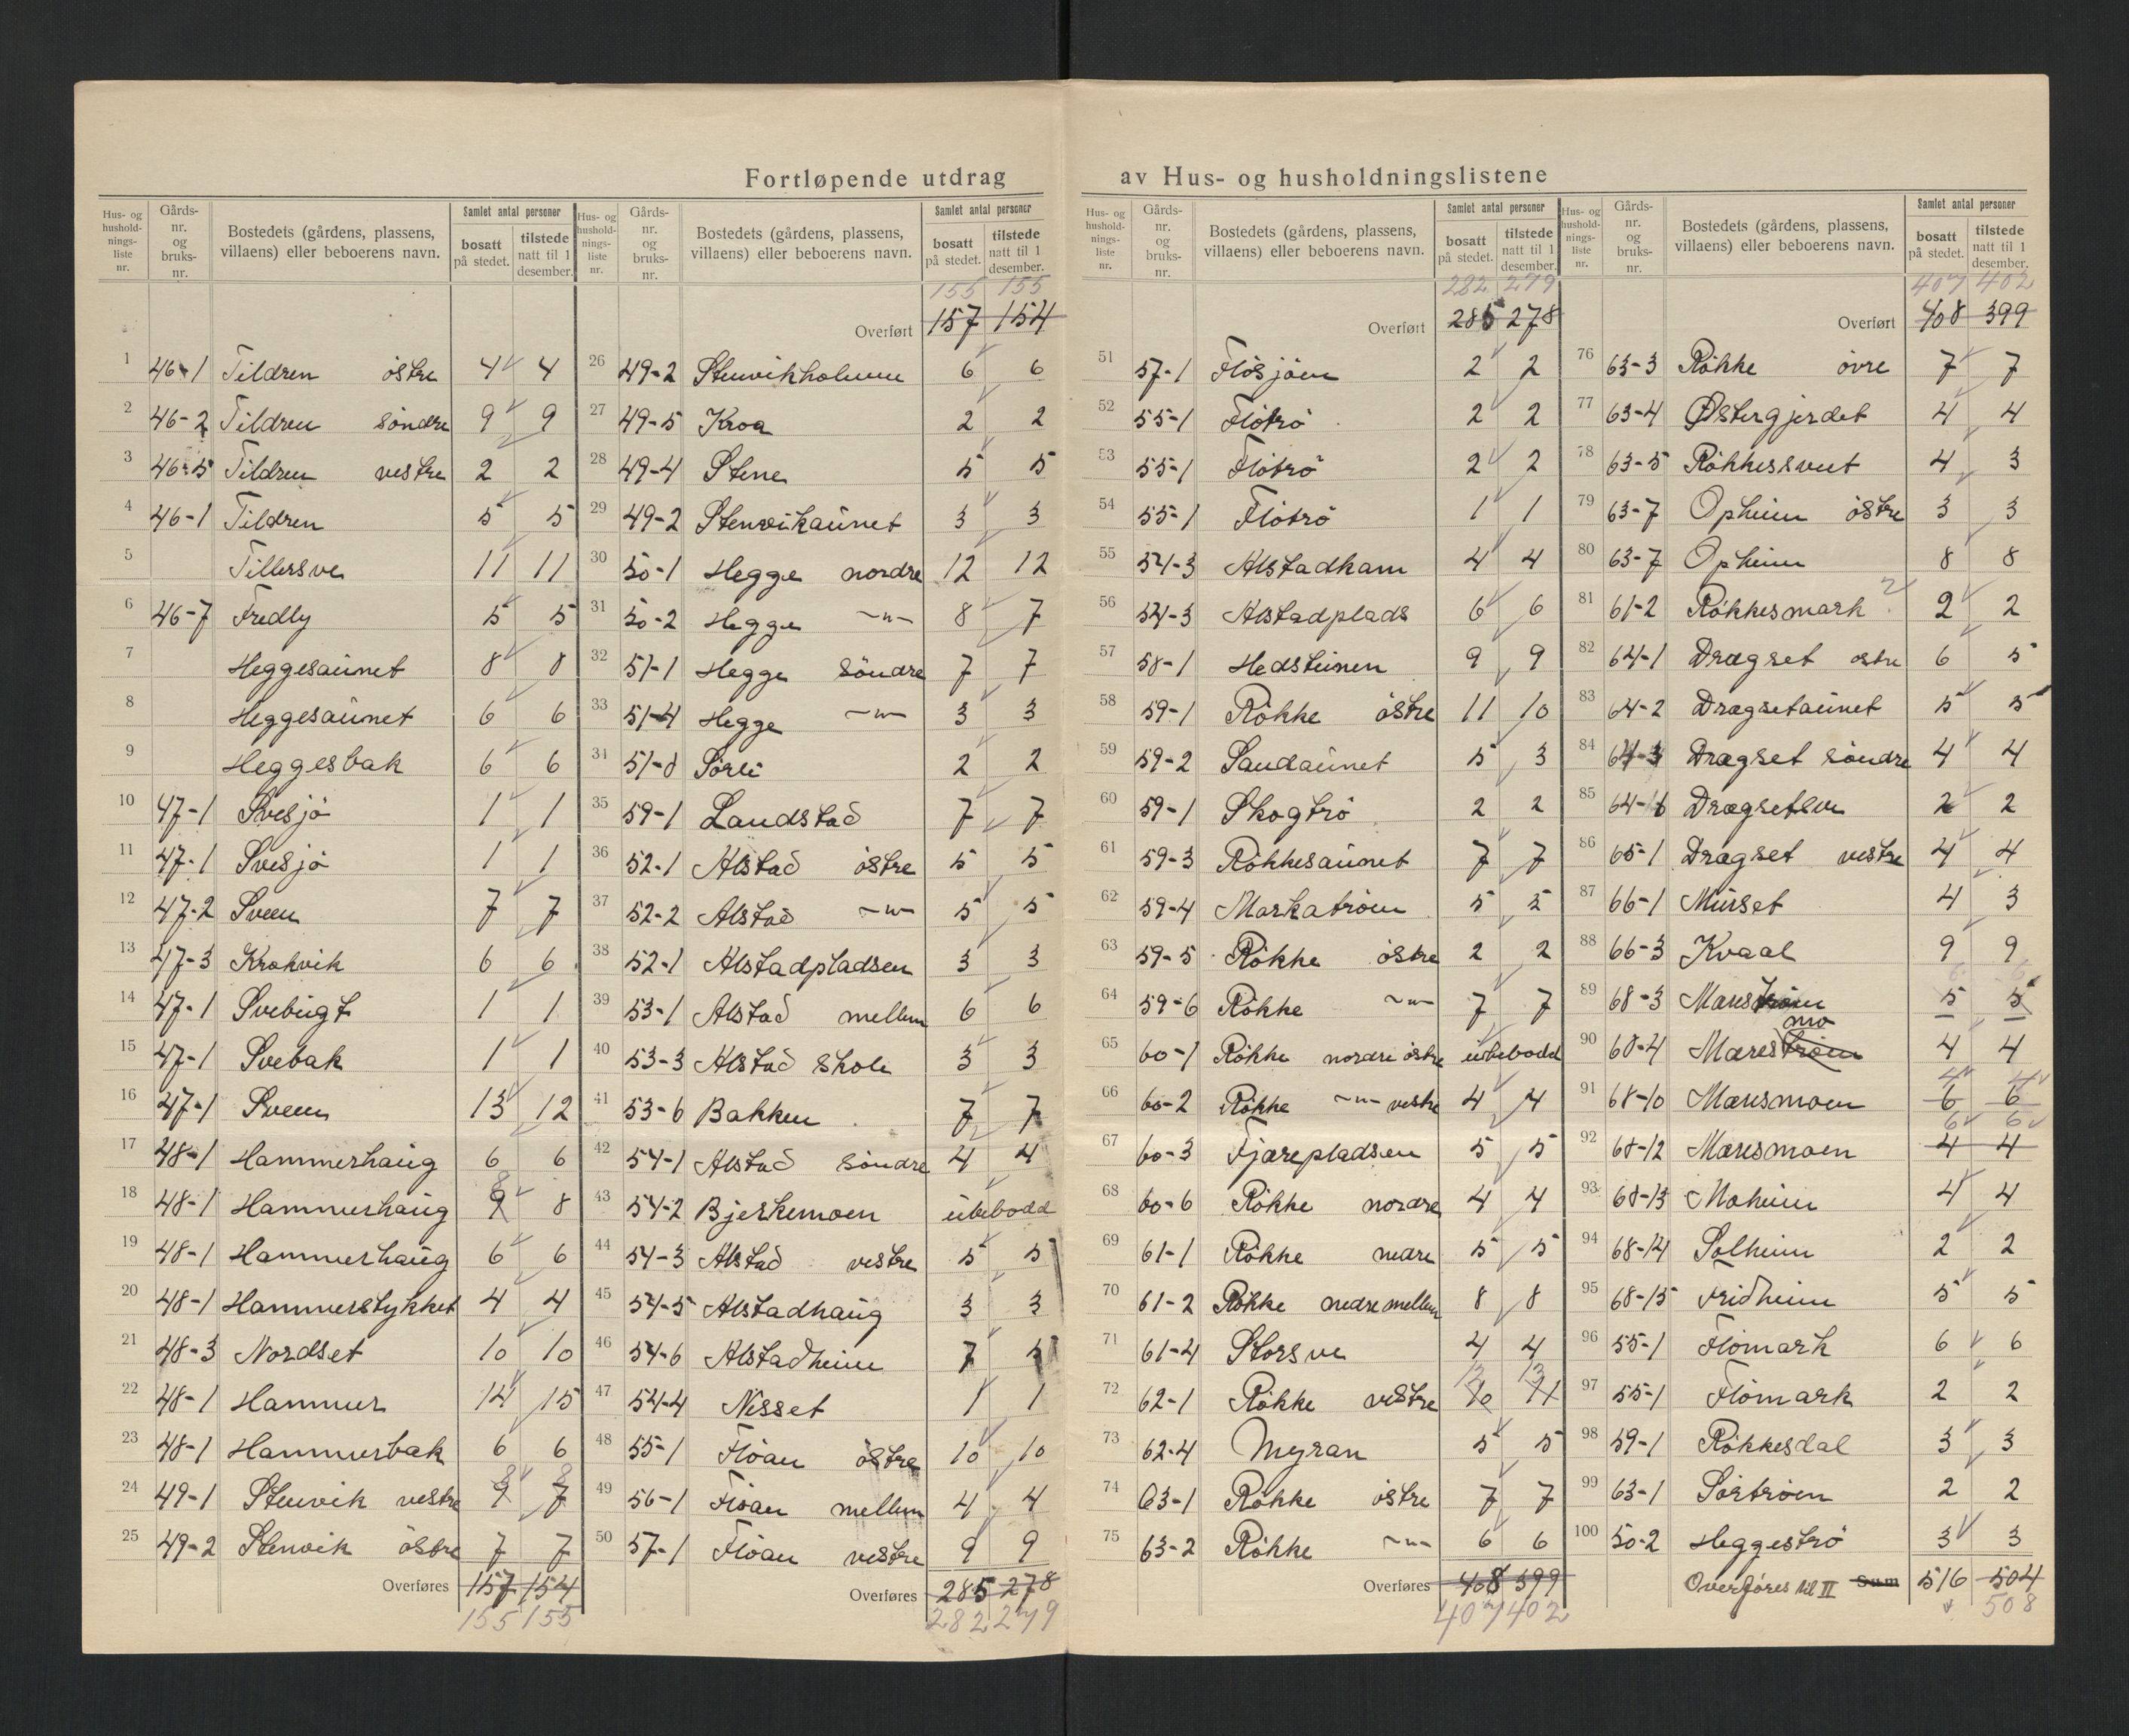 Fortløpende utdrag av Hus- og husholdningslistene
Hus- og hushold- nings- liste nr. Gårds- nr. og bruks- nr. Bostedets (gårdens, plassens, villaens) eller beboerens navn. Samlet antal personer bosatt på stedet. tilstede natt til 1 desember.
1 46-1 Tildren östre 4 4
2 46-2 Tildren söndre 9 9
3 46-5 Tildren vestre 2 2
4 46-1 Tildren 5 5
5 Tillersve 11 11
6 46-7 Fredly 5 5
7 Heggesaunet 8 8
8 Heggesaunet 6 6
9 Heggesbak 6 6
10 47-1 Svesjö 1 1
11 47-1 Svesjö 1 1
12 47-2 Sveen 7 7
13 47-3 Krokvik 6 6
14 47-1 Svebugt 1 1
15 47-1 Svebak 1 1
16 47-1 Sveen 13 12
17 48-1 Hammerhaug 6 6
18 48-1 Hammerhaug 9 8 8
19 48-1 Hammerhaug 6 6
20 48-1 Hammerstykket 4 4
21 48-3 Nordset 10 10
22 48-1 Hammer 14 15
23 48-1 Hammerbak 6 6
24 49-1 Stenvik vestre 9 8 7 8
25 49-2 Stenvik östre 7 7
Overføres 157 154
155 155
Hus- og hushold- nings- liste nr. Gårds- nr. og bruks- nr. Bostedets (gårdens, plassens, villaens) eller beboerens navn. Samlet antal personer bosatt på stedet. tilstede natt til 1 desember.
155 155
Overført 157 154
26 49-2 Stenvikholmen 6 6
27 49-5 Kroa 2 2
28 49-4 Stene 5 5
29 49-2 Stenvikaunet 3 3
30 50-1 Hegge nordre 12 12
31 50-2 Hegge -"- 8 7
32 51-1 Hegge söndre 7 7
33 51-4 Hegge -"- 3 3
34 51-8 Sörli 2 2
35 59-1 Landstad 7 7
36 52-1 Alstad östre 5 5
37 52-2 Alstad -"- 5 5
38 52-1 Alstadpladsen 3 3
39 53-1 Alstad mellem 6 6
40 53-3 Alstad skole 3 3
41 53-6 Bakken 7 7
42 54-1 Alstad söndre 4 4
43 54-2 Bjerkemoen ubebodd
44 54-3 Alstad vestre 5 5
45 54-5 Alstadhaug 3 3
46 54-6 Alstadheim 7 5
47 54-4 Nesset 1 1
48 55-1 Flöan östre 10 10
49 56-1 Flöan mellem 4 4
50 57-1 Flöan vestre 9 9
Overføres 285 278
282 279
Hus- og hushold- nings- liste nr. Gårds- nr. og bruks- nr. Bostedets (gårdens, plassens, villaens) eller beboerens navn. Samlet antal personer bosatt på stedet. tilstede natt til 1 desember.
282 279
Overført 285 278
51 57-1 Flösjöen 2 2
52 55-1 Flötrö 2 2
53 55-1 Flötrö 2 2
54 55-1 Flötrö 1 1
55 54-3 Alstadkam 4 4
56 54-3 Alstadplads 6 6
57 58-1 Hedsteinen 9 9
58 59-1 Rökke östre 11 10
59 59-2 Sandaunet 5 3
60 59-1 Skogtrö 2 2
61 59-3 Rökkesaunet 7 7
62 59-4 Markatröen 5 5
63 59-5 Rökke östre 2 2
64 59-6 Rökke -"- 7 7
65 60-1 Rökke nordre östre ubebodd
66 60-2 Rökke -"- vestre 4 4
67 60-3 Fjærepladsen 5 5
68 60-6 Rökke nordre 4 4
69 61-1 Rökke nedre 5 5
70 61-2 Rökke nedre mellem 8 8
71 61-4 Storsve 4 4
72 62-1 Rökke vestre 10 12 11 13
73 62-4 Myran 5 5
74 63-1 Rökke östre 7 7
75 63-2 Rökke -"- 6 6
Overføres 408 399
407 402
Hus- og hushold- nings- liste nr. Gårds- nr. og bruks- nr. Bostedets (gårdens, plassens, villaens) eller beboerens navn. Samlet antal personer bosatt på stedet. tilstede natt til 1 desember.
407 402
Overført 408 399
76 63-3 Rökke övre 7 7
77 63-4 Østergjerdet 4 4
78 63-5 Rökkessveet 4 3
79 63-7 Opheim östre 3 3
80 63-7 Opheim 8 8
81 61-2 Rökkesmark ? 2 2
82 64-1 Drogset östre 6 5
83 64-2 Drogsetaunet 5 5
84 64-3 Drogset söndre 4 4
85 64-6 Drogsetsve 2 2
86 65-1 Drogset vestre 4 4
87 66-1 Murset 4 3
88 66-3 Kvaal 9 9
89 68-3 Mæreströen 5 6 5 6
90 68-4 Mærestrøen mo 4 4
91 68-10 Mæresmoen 6 4 6 4
92 68-12 Mæresmoen 4 6 4 6
93 68-13 Moheim 4 4
94 68-14 Solheim 2 2
95 68-15 Fridheim 5 5
96 55-1 Flömark 6 6
97 55-1 Flömark 2 2
98 59-1 Rökkesdal 3 3
99 63-1 Sörtröen 2 2
100 50-2 Heggeströ 3 3
Overføres til II Sum 516 504
508